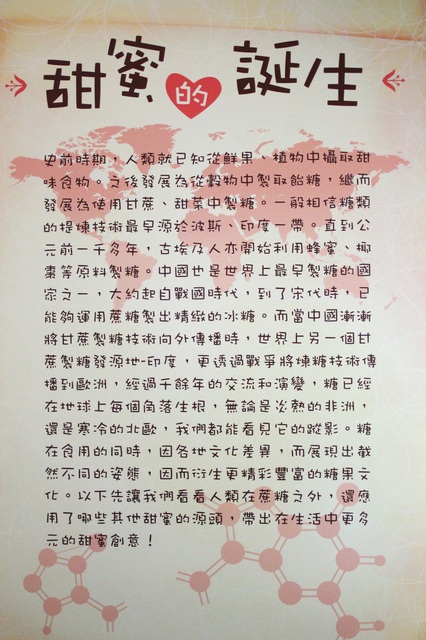 甜蜜的誕生
史前時期，人類就已知從鮮果、植物中攝取甜
味食物。之後發展為從穀物中製取飴糖，繼而
發展為使用甘蔗、甜菜中製糖。一般相信糖類
的提煉技術最早源於波斯、印度一帶，直到公
元前一千多年，古埃及人亦開始利用蜂蜜、椰
棗等原料製糖。中國也是世界上最早製糖的國
家之一，大約起自戰國時代，到了宋代時，已
能夠運用蔗糖製出精緻的冰糖。而當中國漸漸
將甘蔗製糖技術向外傳播時，世界上另一個甘
蔗製糖發源地-印度，更透過戰爭將煉糖技術傳
播到歐洲，經過千餘年的交流和演變，糖已經
在地球上每個角落生根，無論是炎熱的非洲，
還是寒冷的北歐，我們都能看見它的蹤影。糖
在食用的同時，因各地文化差異，而展現出截
然不同的姿態，因而衍生更精彩豐富的糖果文
化。以下先讓我們看看人類在蔗糖之外，還應
用了哪些其他甜蜜的源頭，帶出在生活中更多
元的甜蜜創意！